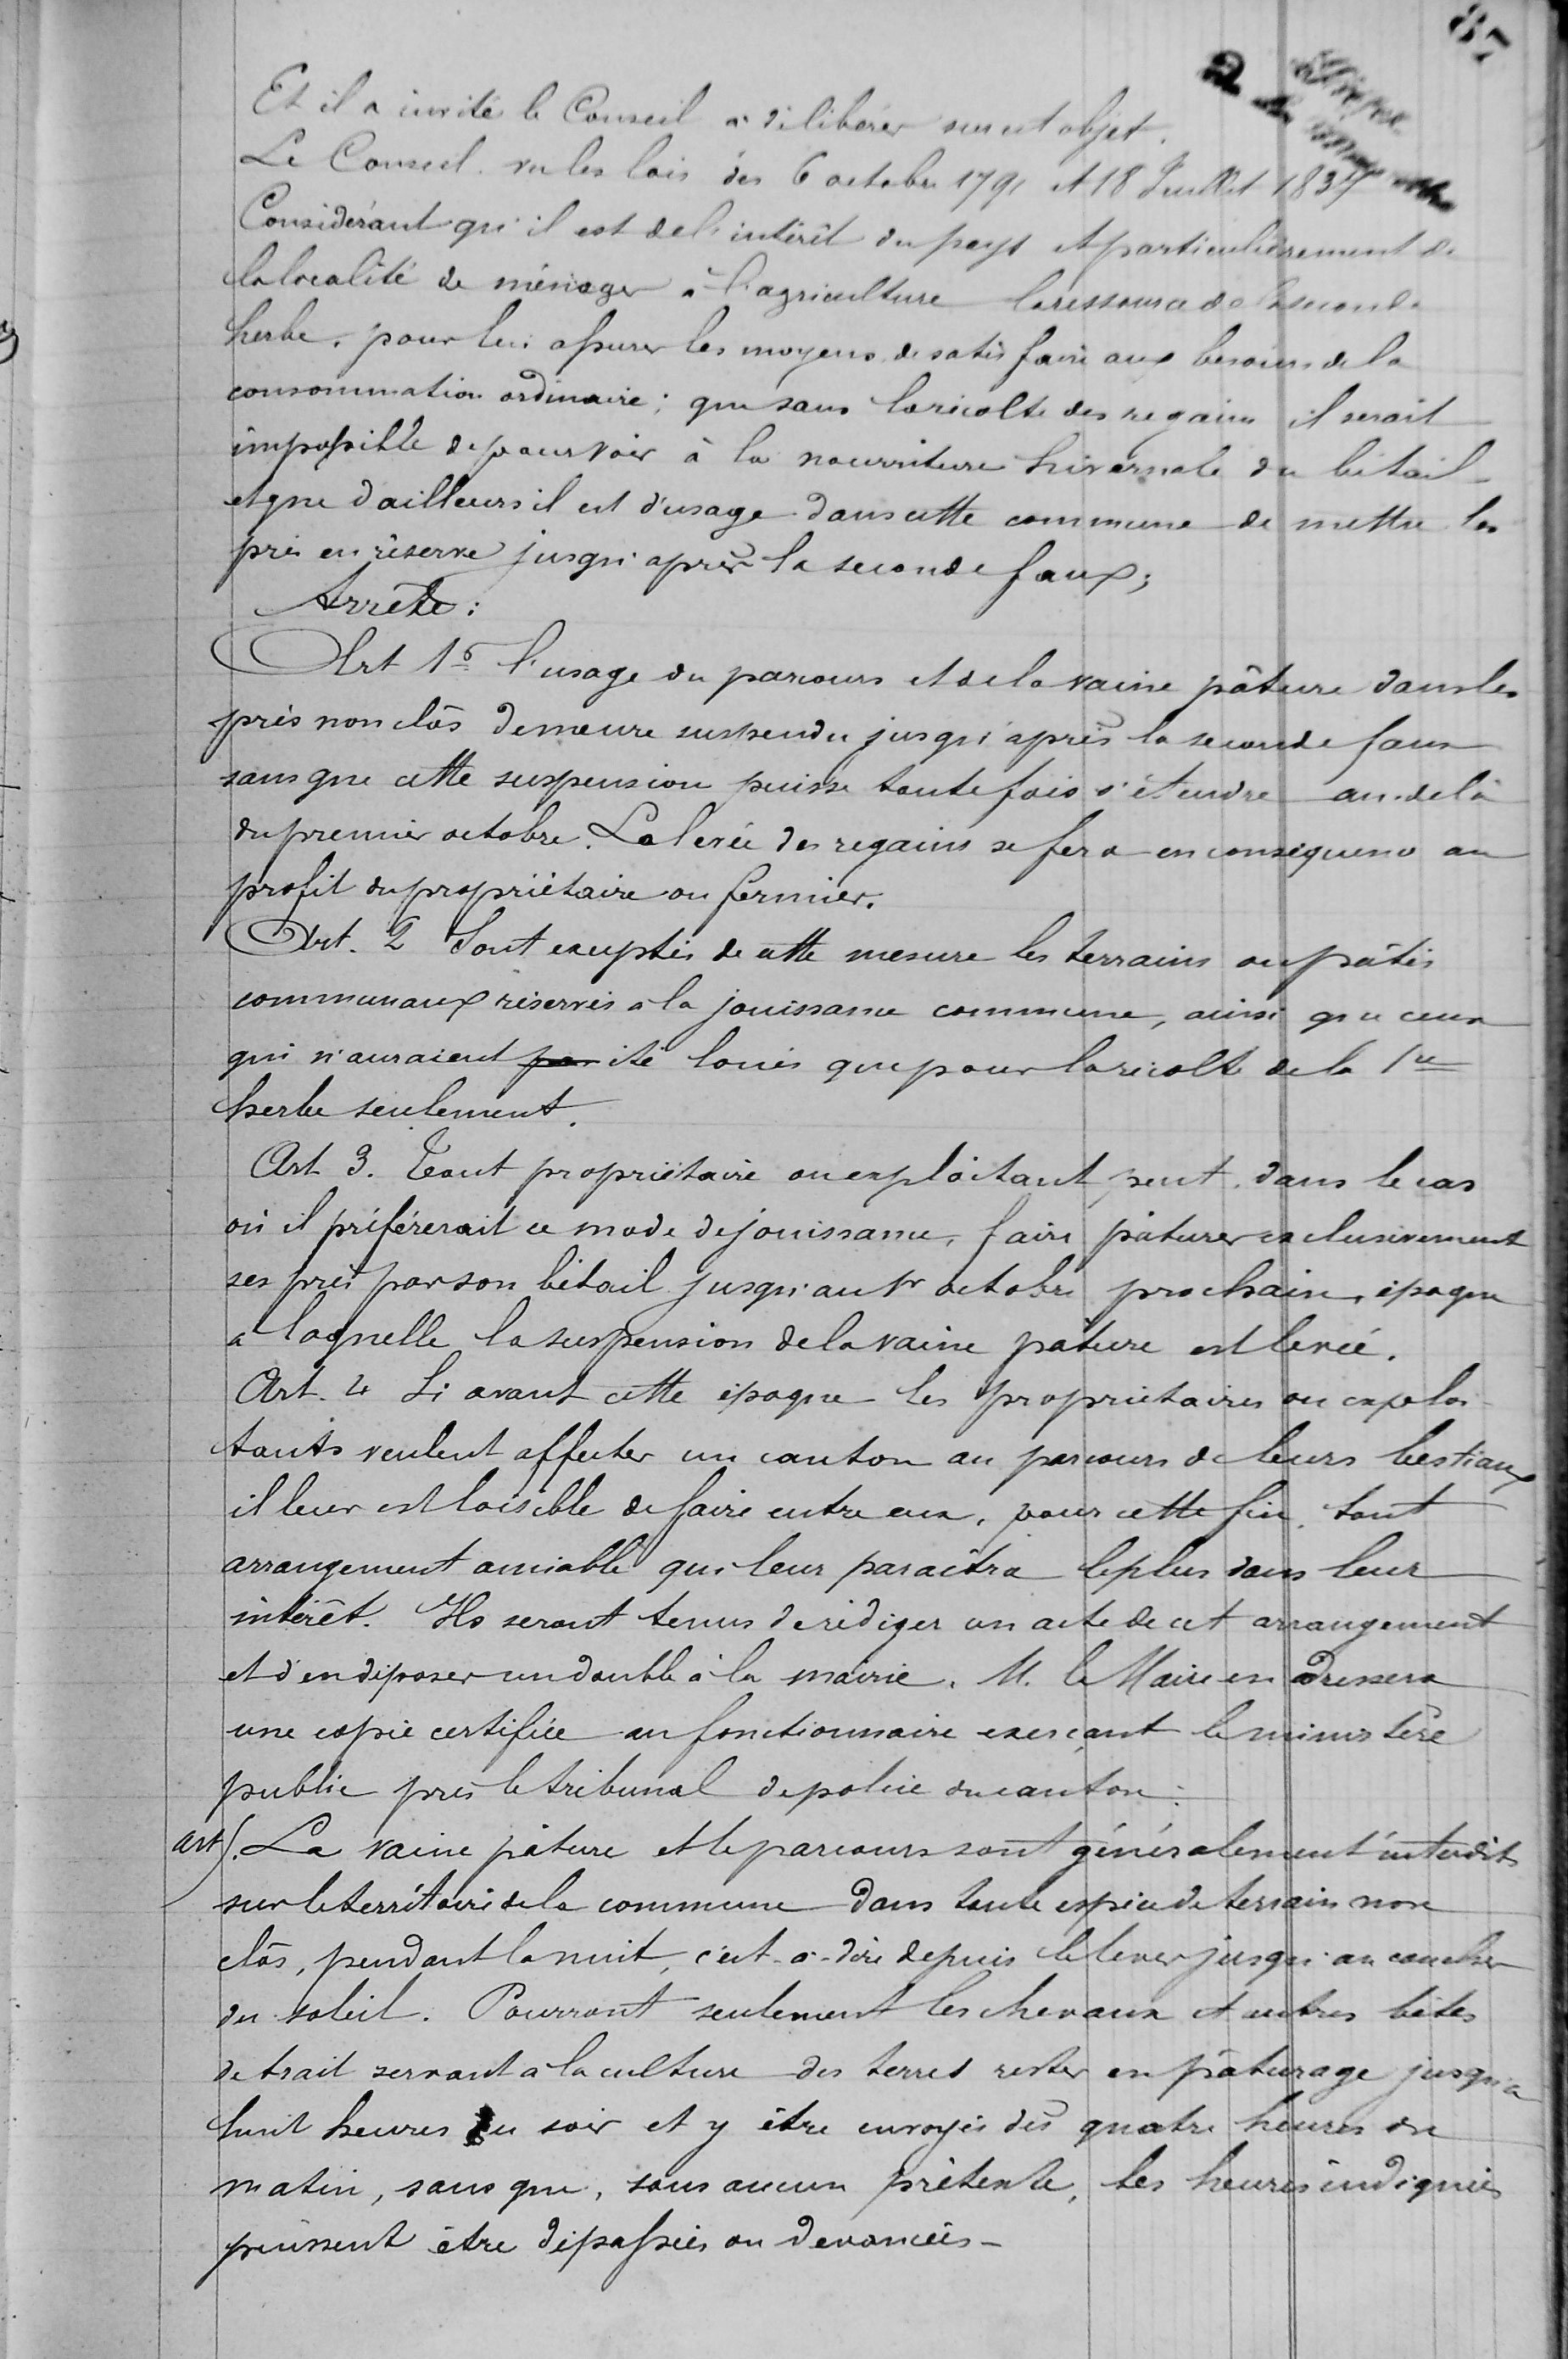 87
Et il a invité le Conseil à délibérer sur cet objet.
Le Conseil. vu les lois des 6 octobre 1791 et 18 Juillet 1837
Considérant qu'il est de l'intérêt du pays et particulièrement de
la localité de ménager à l'agriculture la ressource de la seconde
herbe, pour lui assurer les moyens de satisfaire aux besoins de la
consommation ordinaire; que sans la récolte des regains il serait
impossible de pourvoir à la nourriture hivernale du bétail
et que d'ailleurs il est d'usage dans cette commune de mettre les
prés en réserve jusqu'après la seconde faux;
Arrête:
Art 1º l'usage du parcours et de la vaine pâture dans les
près non clôs demeure suspendu jusqu'après la seconde faux
sans que cette suspension puisse toutefois s'étendre au-delà
du premier octobre. La levée des regains se fera en conséquence au
profit du propriétaire ou fermier.
Art. 2 Sont exceptés de cette mesure les terrains ou pâtis
communaux réservés à la jouissance commune, ainsi que ceux
qui n'auraient pas été loués que pour la récolte de la 1re
herbe seulement.
Art 3. Tout propriétaire ou exploitant peut, dans le cas
où il préférerait ce mode de jouissance, faire pâturer exclusivement
ses prés par son bétail jusqu'au 1r octobre prochain, époque
à laquelle la suspension de la vaine pâture est levée.
Art. 4 Si avant cette époque les propriétaires ou exploi-
tants veulent affecter un canton au parcours de leurs bestiaux
il leur est loisible de faire entre eux, pour cette fin, tout
arrangement amiable qui leur paraîtra le plus dans leur
intérêt. Ils seront tenus de rédiger un acte de cet arrangement
et d'en déposer un double à la mairie. M. le Maire en adressera
une copie certifiée au fonctionnaire exerçant le ministère
public près le tribunal de police du canton.
Art 5. La vaine pâture et le parcours sont généralement interdits
sur le territoire de la commune dans toute espèce de terrain non
clôs, pendant la nuit, c'est-à-dire depuis le lever jusqu'au coucher
du soleil. Pourront seulement les chevaux et autres bêtes
de trait servant à la culture des terres rester en pâturage jusqu'à
huit heures du soir et y être envoyés dès quatre heures du
matin, sans que, sous aucun prétexte, les heures indiquées
puissent être dépassées ou devancées-